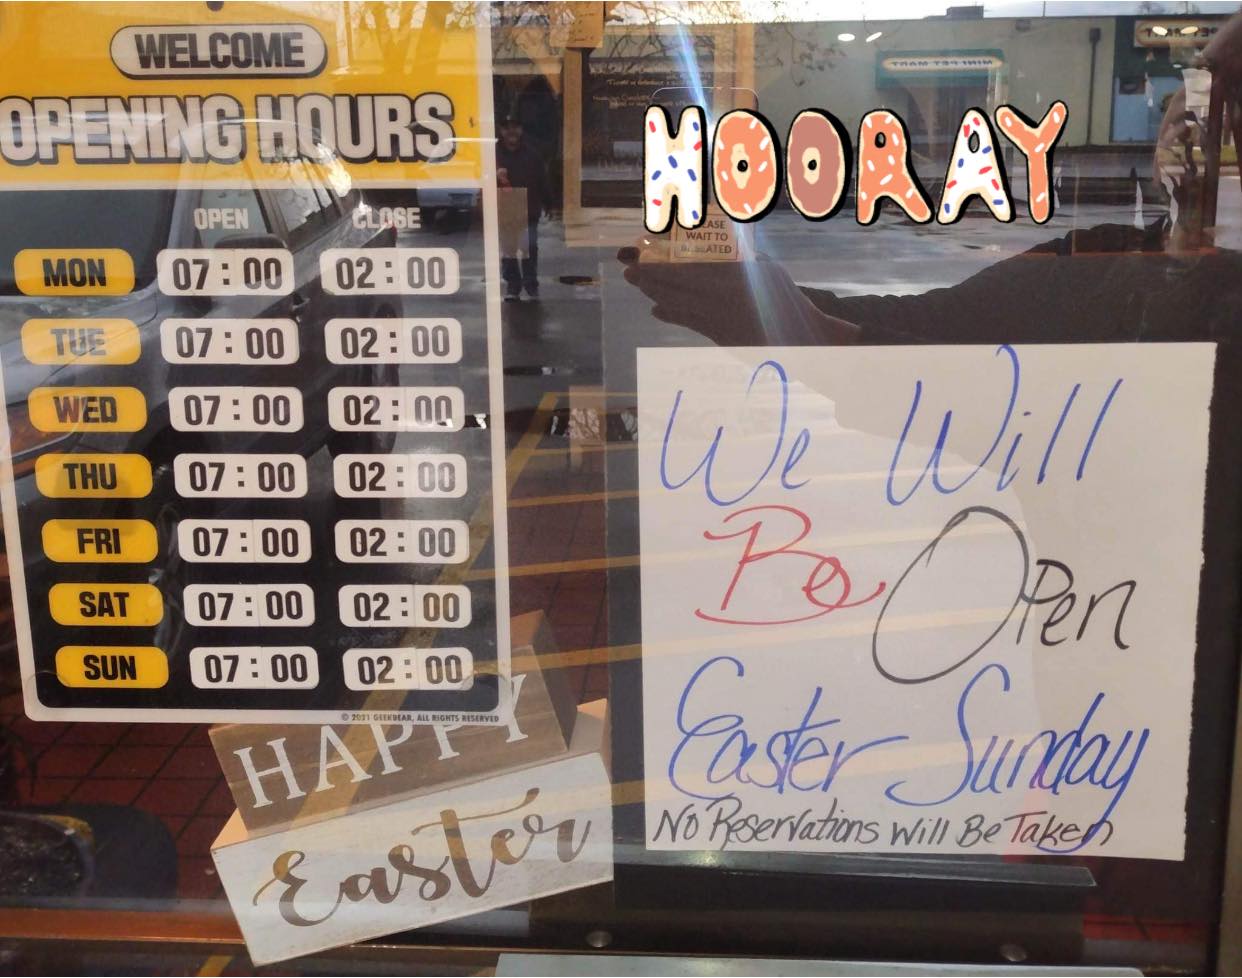 WELCOME
OPENING HOURS
OPEN CLOSE
MON 07:00 02:00
TUE 07:00 02:00
WED 07:00 02:00
THU 07:00 02:00
FRI 07:00 02:00
SAT 07:00 02:00
SUN 07:00 02:00
© 2021 GEEKBEAR, ALL RIGHTS RESERVED
HAPPY
Easter
HOORAY
PLEASE
WAIT TO
BE SEATED
We Will
Be Open
Easter Sunday
No Reservations Will Be Taken
MINI PET MART